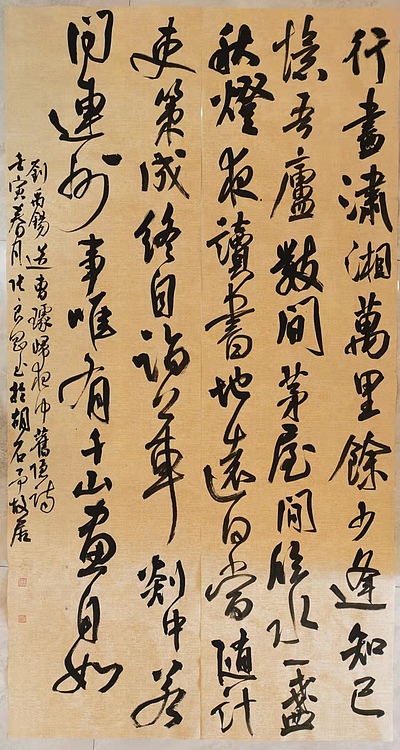 行盡瀟湘萬里餘少逢知己
憶吾廬數間茅屋閒臨水一盞
秋燈夜讀書地遠何當隨計
吏策成終自詣公車剡中若
問連州事唯有千山畫不如
劉禹錫送曹璩歸越中舊隱詩
壬寅春月張良書於胡石予故居